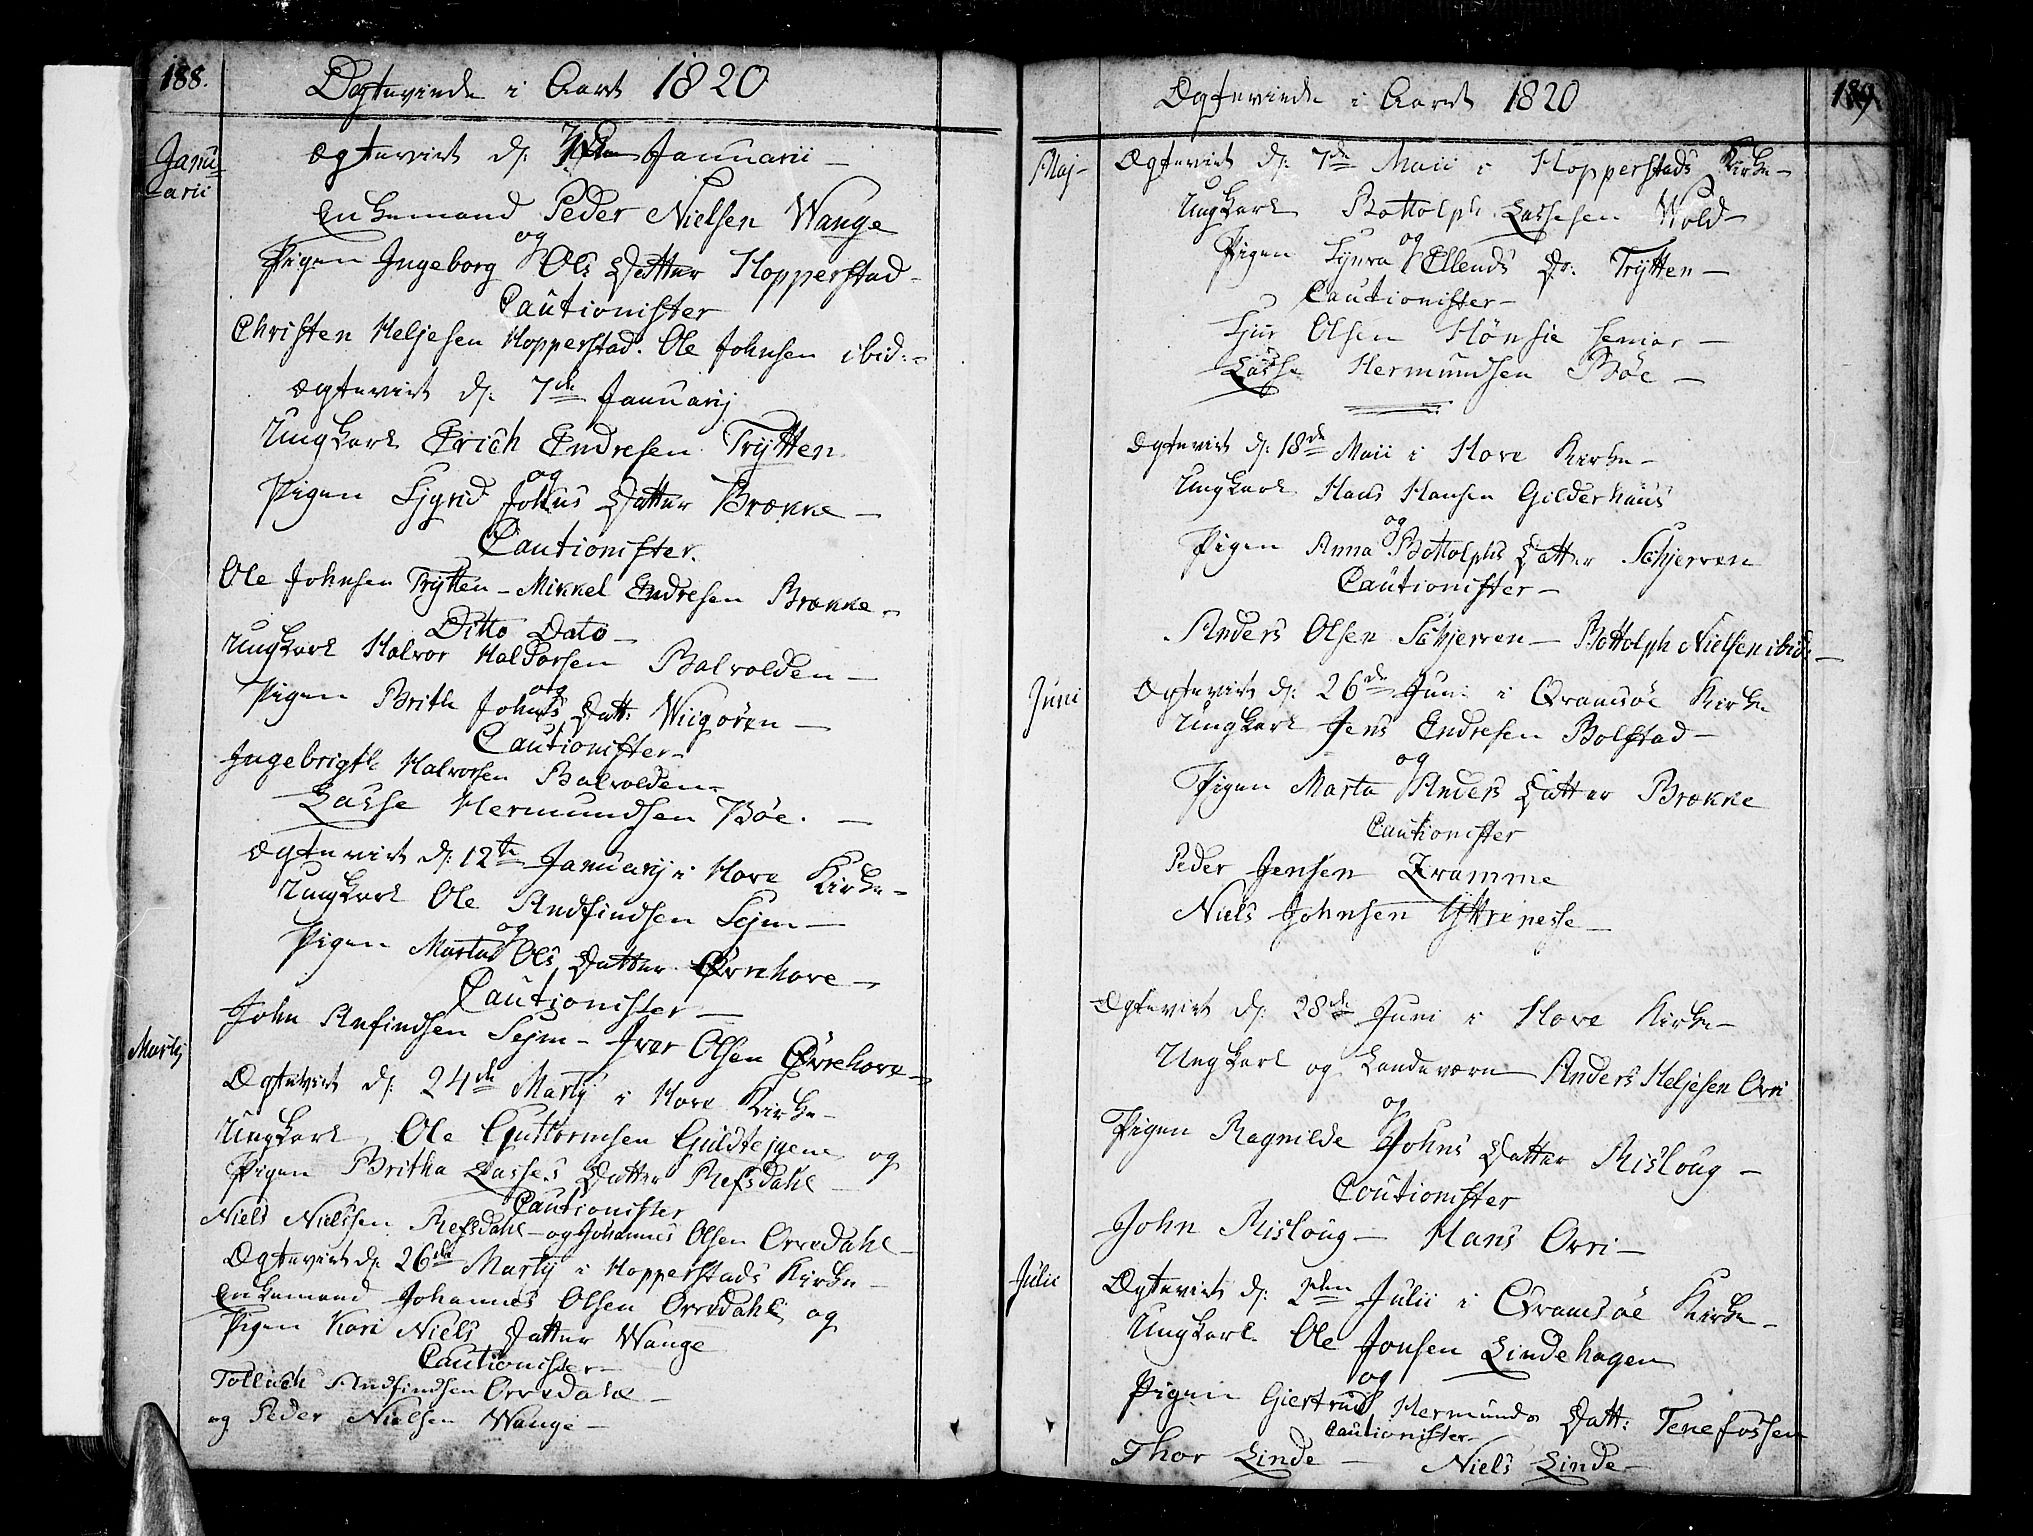 188.
Ægteviede i Aaret 1820
Janu-
arii
Ægteviet d: Januarii –
Enkemand Peder Nielsen Wange
og
Pigen Ingeborg Ols Datter Hopperstad –
Cautionister
Christen Heljesen Hopperstad. Ole Johnsen ibid: –
Ægteviet d: 7de Januarij
Ungkarl Erich Endresen Trÿtten
og
Pigen Sygrid Johns Datter Brække –
Cautionister.
Ole Johnsen Trÿtten – Mikkel Endresen Brække –
Ditto Dato –
Ungkarl Halvor Haldorsen Balvolden –
og
Pigen Brith Johns Datt: Wiigøren –
Cautionister –
Ingebrigth Halvorsen Balvolden –
Lasse Hermundsen Bøe. –
Ægteviet d: 12te Januarij i Hove Kirke –
Ungkarl Ole Andfindsen Sejm –
og
Pigen Marta Ols Datter Øvrehove –
Cautionister –
John Anfindsen Sejm – Iver Olsen Øvrehove –
Martij
Ægteviet d: 24de Martij i Hove Kirke –
Ungkarl Ole Guttormsen Guldtejgene og
Pigen Britha Lasses Datter Refsdahl –
Cautionister
Niels Nielssen Refsdahl – og Johannes Olsen Orredahl –
Ægteviet d: 26de Martij i Hopperstads Kirke –
Enkemand Johannes Olsen Orredahl og
Pigen Kari Niels Datter Wange
Cautionister –
Tollach Andfindsen Orredahl –
og Peder Nielsen Wange –
189
Ægteviede i Aaret 1820
Maj –
Ægteviet d: 7de Maii i Hopperstads Kirke –
Ungkarl Bottolph Lassesen Wold –
og
Pigen Synva Ellends Dr: Trÿtten –
Cautionister –
Siur Olsen Hønsie senior –
Lasse Hermundsen Bøe –
Ægteviet d: 18de Maii i Hove Kirke –
Ungkarl Hans Hansen Gilderhuus
og
Pigen Anna Bottolphs Datter Schjerven
Cautionister –
Anders Olsen Schjerven – Bottolph Nielsen ibid: –
Juni
Ægteviet d: 26de Juni i Qvamsøe Kirke
Ungkarl Jens Endresen Bolstad –
og
Pigen Marta Anders Datter Brække
Cautionister
Peder Jensen Framme
Niels Johnsen Yttrinesse –
Ægteviet d: 28de Juni i Hove Kirke –
Ungkarl og Landeværn Anders Heljesen Orri
og
Pigen Ragnilde Johns Datter Risloug –
Coutionister
John Risloug – Hans Orri –
Julii
Ægteviet d: 2den Julii i Qvamsøe Kirke –
Ungkarl Ole Jonsen Lindehagen
og
Pigen Giertrud Hermunds Datt: Tenefossen
Cautionister –
Thor Linde – Niels Linde –